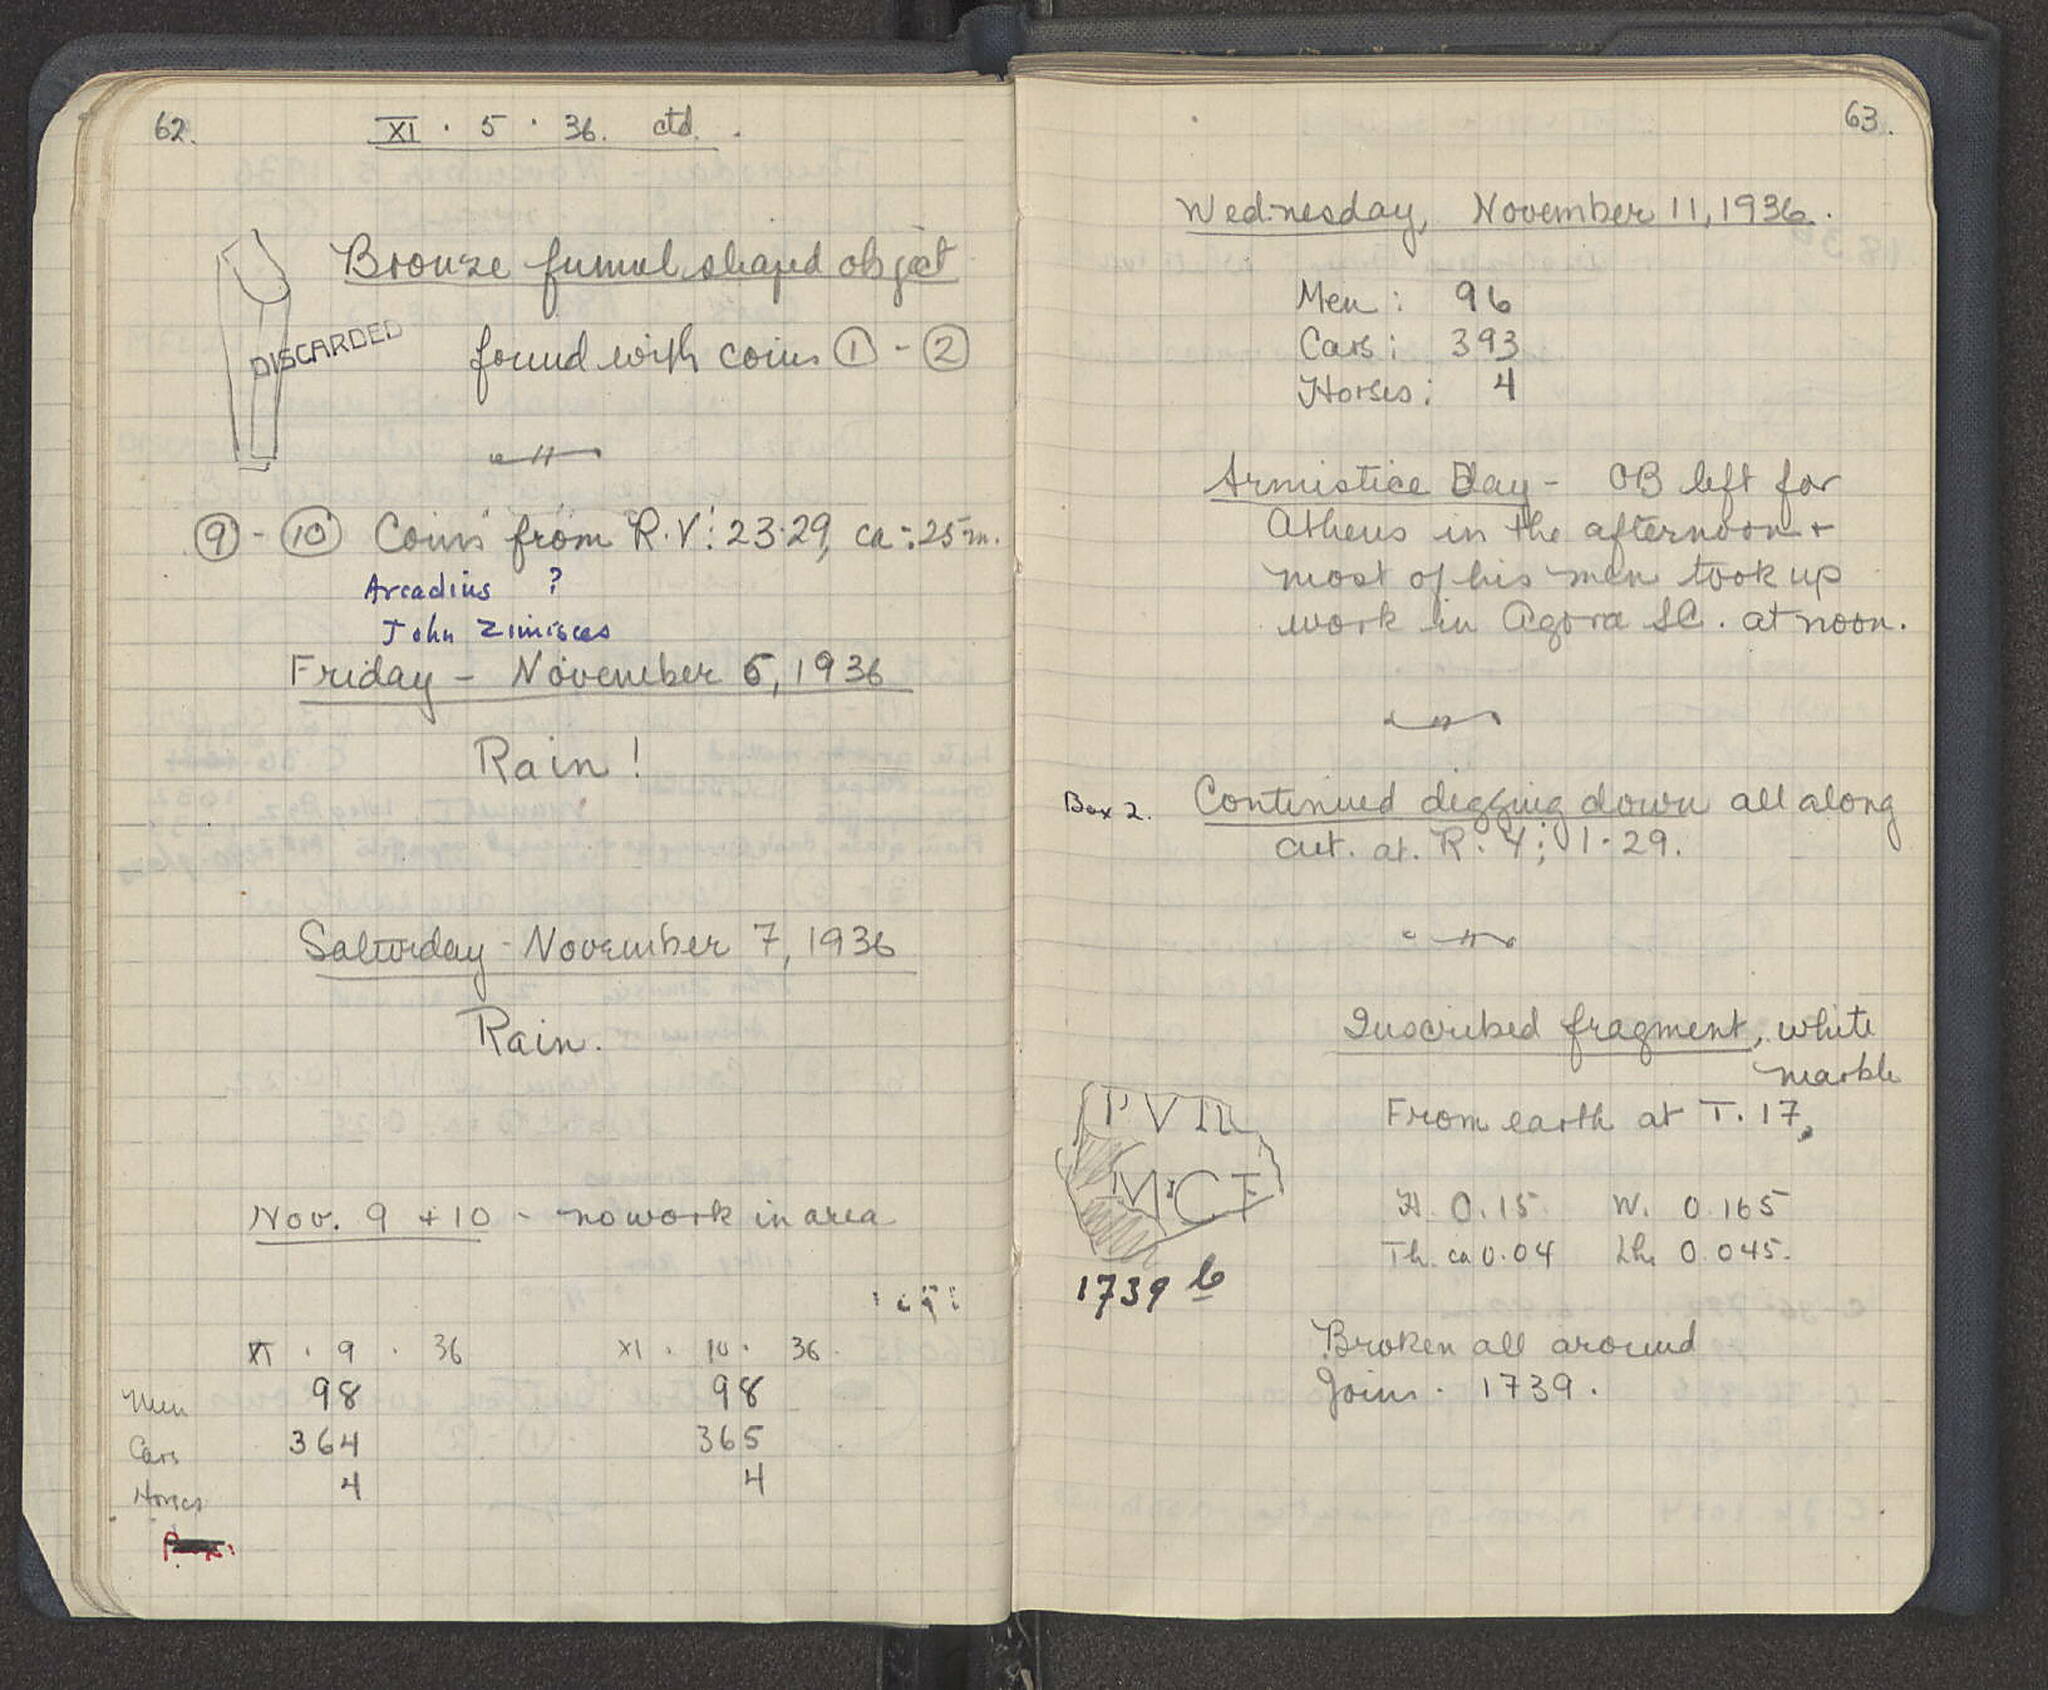 62.
XI . 5 . 36. ctd.
Bronze funnel shaped object
DISCARDED
found with coins ① - ②
⑨ - ⑩ Coins from R.V: 23.29, ca .25 m.
Arcadius ?
John Zimisces
Friday - November 6, 1936
Rain!
Saturday - November 7, 1936
Rain.
Nov. 9 + 10 - no work in area
XI . 9 . 36 XI . 10 . 36
Men 98 98
Cars 364 365
Horses 4 4
63.
Wednesday, November 11, 1936.
Men: 96
Cars: 393
Horses: 4
Armistice Day - OB left for
Athens in the afternoon +
most of his men took up
work in Agora SC. at noon.
Box 2. Continued digging down all along
cut. at. R. 4; 1-29.
Inscribed fragment, white
marble
PVR
From earth at T. 17,
MCT
H. 0.15 W. 0.165
Th. ca 0.04 Lh. 0.045.
1739 b
Broken all around
Joins. 1739.